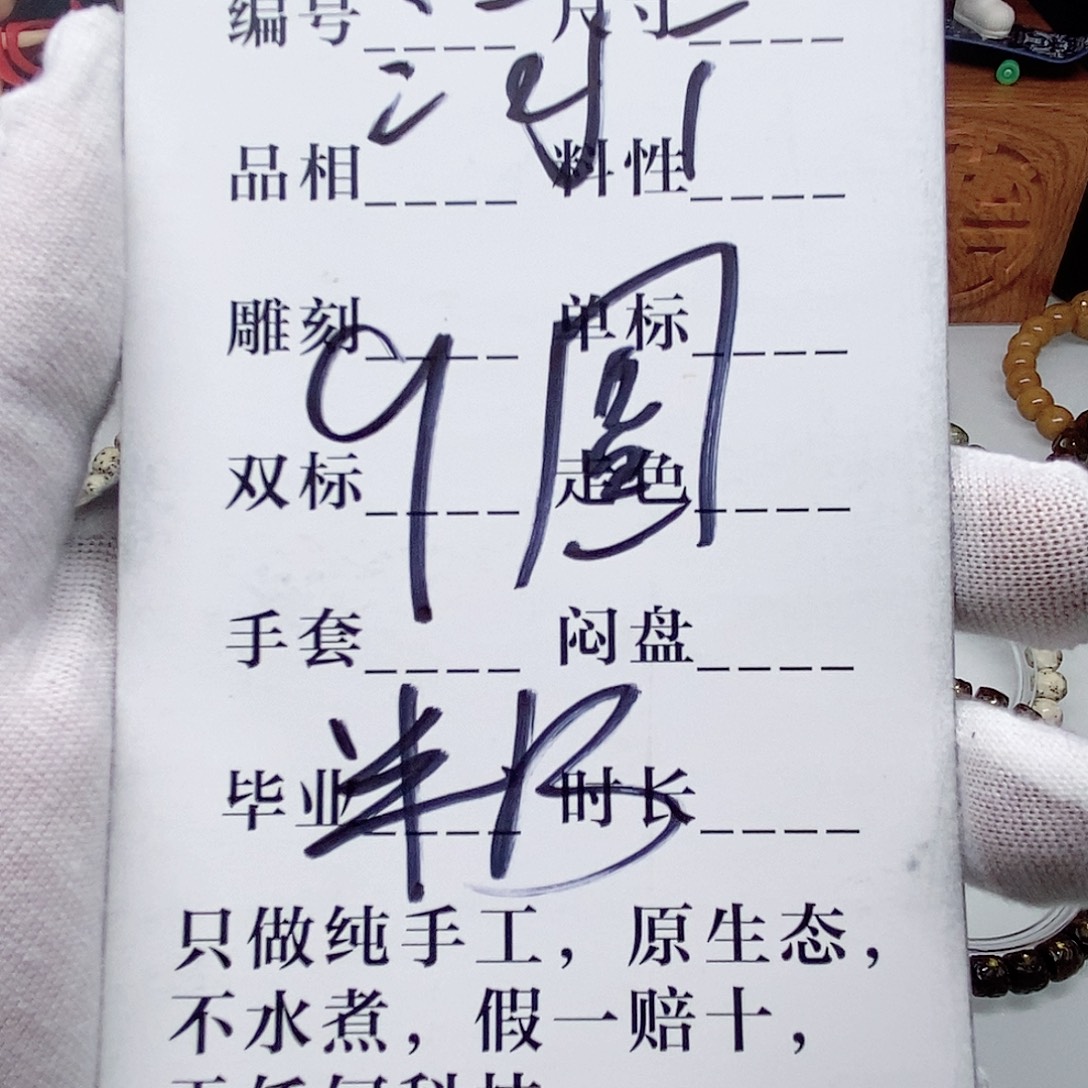 编号____ 尺寸____
品相____ 料性____
雕刻____ 单标____
双标____ 走色____
9圆
手套____ 闷盘____
毕业____ 时长____
半B
只做纯手工，原生态，
不水煮，假一赔十，